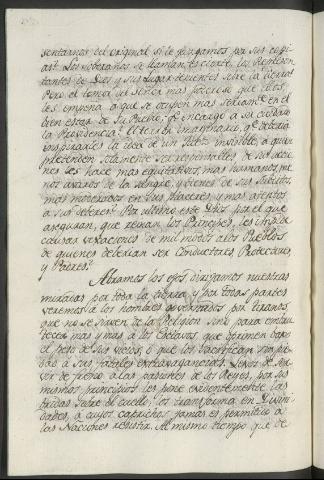 sentarnos del original si le juzgamos por sus copi-
as? Los Soberanos se llaman, es cierto, los Represen-
tantes de Dios y sus Lugar-tenientes sobre la tierra.
Pero el temor del Señor mas poderoso que ellos,
les empeña á que se ocupen mas seriam.te en el
bien estar de su Pueblo; q.e encargó a su cuidado
la Providencia? El terror imaginario, q.e deberia
inspirarles la idea de un Juez invisible, á quien
pretenden solamente ser responsables de sus accio-
nes les hace mas equitativos, mas humanos, me-
nos avaros de la sangre, y bienes de sus subditos,
mas moderados en sus placeres, y mas atentos
á sus deberes? Por ultimo este Dios por el que
aseguran, que reinan los Principes, les impide
causar vexaciones de mil modos a los Pueblos
de quienes deberian ser Conductores, Protectores,
y Padres?
Abramos los ojos, dirijamos nuestras
miradas por toda la tierra y por todas partes
veremos á los hombres governados por tiranos
que no se sirven de la Religion sino para embru-
tecer mas y mas á los Esclavos, que oprimen bajo
el peso de sus vicios, ó que los sacrifican sin pie-
dad á sus fatales extravagancias. Lejos de ser-
vir de freno á las pasiones de los Reyes, por sus
mismos principios les pone evidentemente las
bridas sobre el cuello; los transforma en Divini-
dades, á cuyos caprichos jamas es permitido á
las Naciones resistir. Al mismo tiempo que de